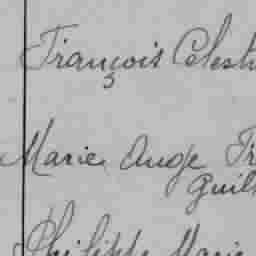 François Celest
Marie Ange Tr
Guil
Philippe Marie